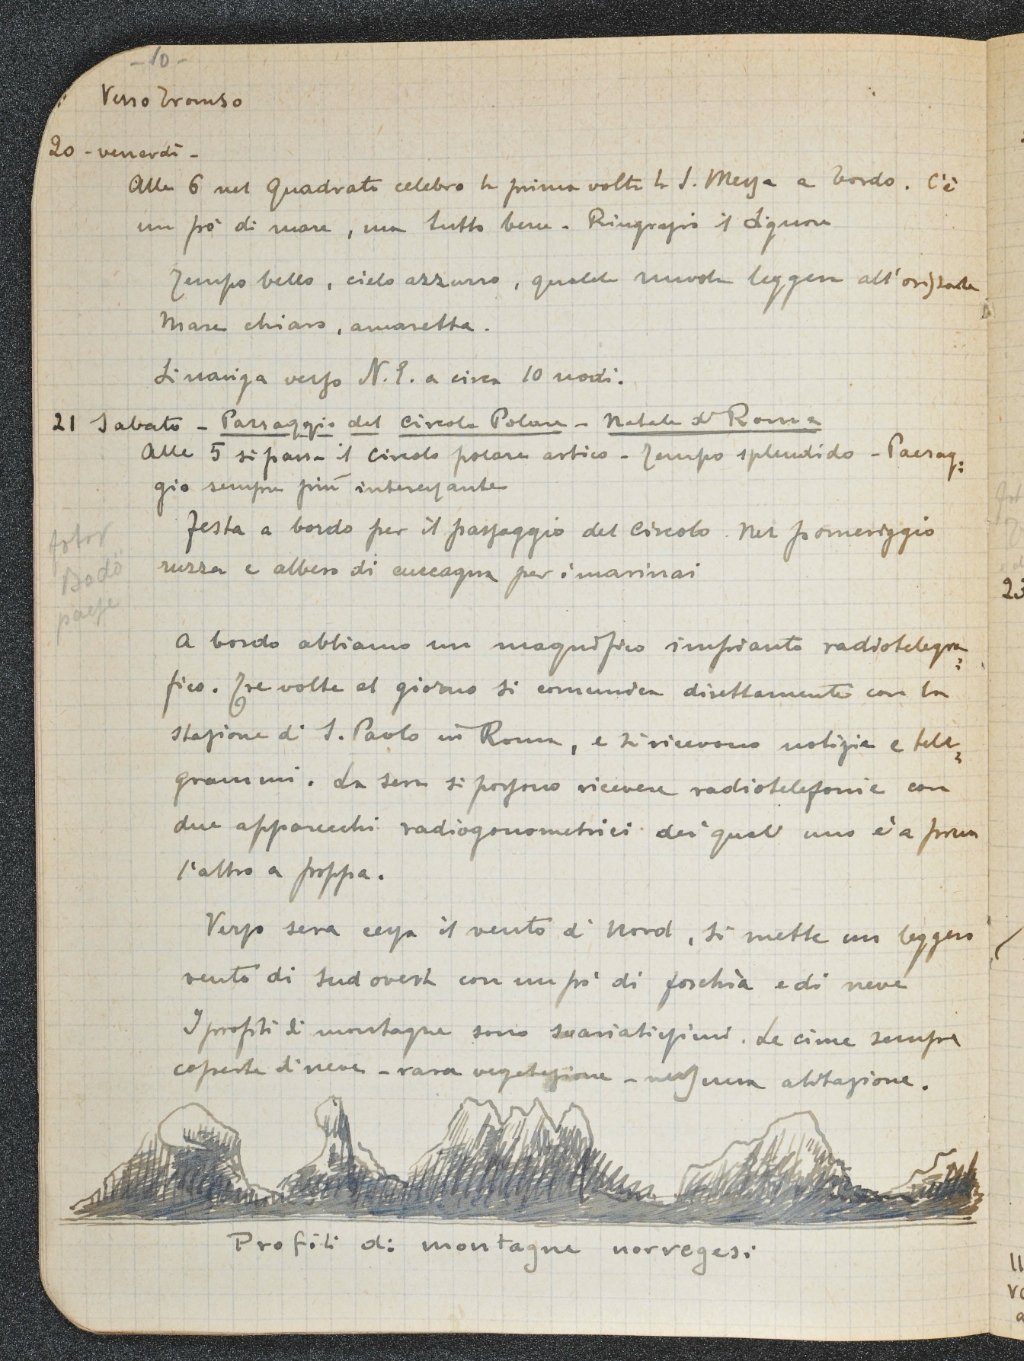 - 10 -
Verso Tromso
20 - venerdì -
Alle 6 nel Quadrato celebro la prima volta la S. Messa a bordo. C'è
un pò di mare, ma tutto bene - Ringrazio il Signore
Tempo bello, cielo azzurro, qualche nuvola leggera all'orizzonte
Mare chiaro, amaretta.
Si naviga verso N.E. a circa 10 nodi.
21 Sabato - Passaggio del Circolo Polare - Natale di Roma
Alle 5 si passa il circolo polare artico - Tempo splendido - Paesag:
gio sempre più interessante
Festa a bordo per il passaggio del circolo. Nel pomeriggio
ruzza e albero di cuccagna per i marinai
foto
Bodö
paese
A bordo abbiamo un magnifico impianto radiotelegra:
fico. Tre volte al giorno si comunica direttamente con la
stazione di S. Paolo in Roma, e si ricevono notizie e tele:
grammi. La sera si possono ricevere radiotelefonie con
due apparecchi radiogonometrici dei quali uno è a prua
l'altro a poppa.
Verso sera cessa il vento di Nord, si mette un leggero
vento di Sud ovest con un pò di foschia e di neve
I profili di montagne sono svariatissimi. Le cime sempre
coperte di neve - rara vegetazione - nessuna abitazione.
Profili di montagne norvegesi
23